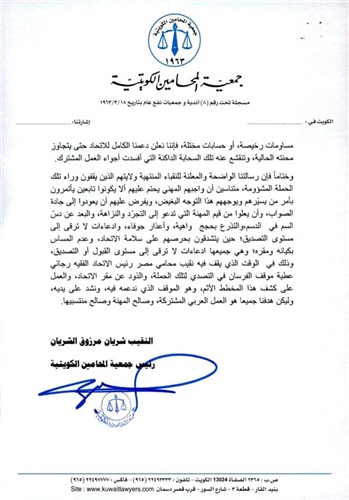 جمعية المحامين الكويتية
١٩٦٣
جمعية المحامين الكويتية
مسجلة تحت رقم (٨) أندية و جمعيات نفع عام بتاريخ ١٩٦٣/٣/١٨
الكويت في :
إشارتنا:
مساومات رخيصة، أو حسابات مختلة، فإننا نعلن دعمنا الكامل للاتحاد حتى يتجاوز
محنته الحالية، وتنقشع عنه تلك السحابة الداكنة التي أفسدت أجواء العمل المشترك.
وختاماً فإن رسالتنا الواضحة والمعلنة للنقباء المنتهية ولايتهم الذين يقفون وراء تلك
الحملة المشؤومة، متناسين أن واجبهم المهني يحتم عليهم ألا يكونوا تابعين يأتمرون
بأمر من يسيّرهم ويوجههم هذا التوجه البغيض، ويفرض عليهم أن يعودوا إلى جادة
الصواب، وأن يعلوا من قيم المهنة التي تدعو إلى التجرّد والنزاهة، والبعد عن دسّ
السم في الدسم، والتذرع بحجج واهية، وأعذار جوفاء، وادعاءات لا ترقى إلى
مستوى التصديق؛ حين يتشدقون بحرصهم على سلامة الاتحاد، وعدم المساس
بكيانه ومقره؛ وهي جميعها ادعاءات لا ترقى إلى مستوى القبول أو التصديق،
وذلك في الوقت الذي يقف فيه نقيب محامي مصر رئيس الاتحاد الفقيه رجائي
عطية موقف الفرسان في التصدي لتلك الحملة، والذود عن مقر الاتحاد، والعمل
على كشف هذا المخطط الآثم، وهو الموقف الذي ندعمه فيه، ونشد على يديه،
وليكن هدفنا جميعاً هو العمل العربي المشتركة، وصالح المهنة وصالح منتسبيها.
النقيب شريان مرزوق الشريان
رئيس جمعية المحامين الكويتية
ص.ب : ٢٣٦٥ الصفاة 13024 الكويت - تلفون : ٢٢٤٩٦٢٢٢ (٩٦٥) - فاكس : ٢٢٤٩٧٧٧٧ (٩٦٥)
بنيد القار - قطعة ٣ - شارع السور - قرب قصر دسمان Site : www.kuwaitlawyers.com